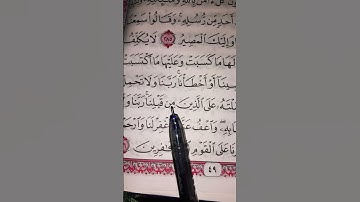 أَحَدٍ مِّن رُّسُلِهِۦ ۚ وَقَالُوا۟ سَمِعْ
وَإِلَيْكَ ٱلْمَصِيرُ ٢٨٥ لَا يُكَلِّفُ
لَهَا مَا كَسَبَتْ وَعَلَيْهَا مَا ٱكْتَسَبَتْ
سِينَآ أَوْ أَخْطَأْنَا ۚ رَبَّنَا وَلَا تَحْمِلْ
لْتَهُۥ عَلَى ٱلَّذِينَ مِن قَبْلِنَا ۚ رَبَّنَا وَ
ا بِهِۦ ۖ وَٱعْفُ عَ غْفِرْ لَنَا وَٱرْحَمْ
نَا عَلَى ٱلْقَوْمِ كَٰفِرِينَ
٤٩